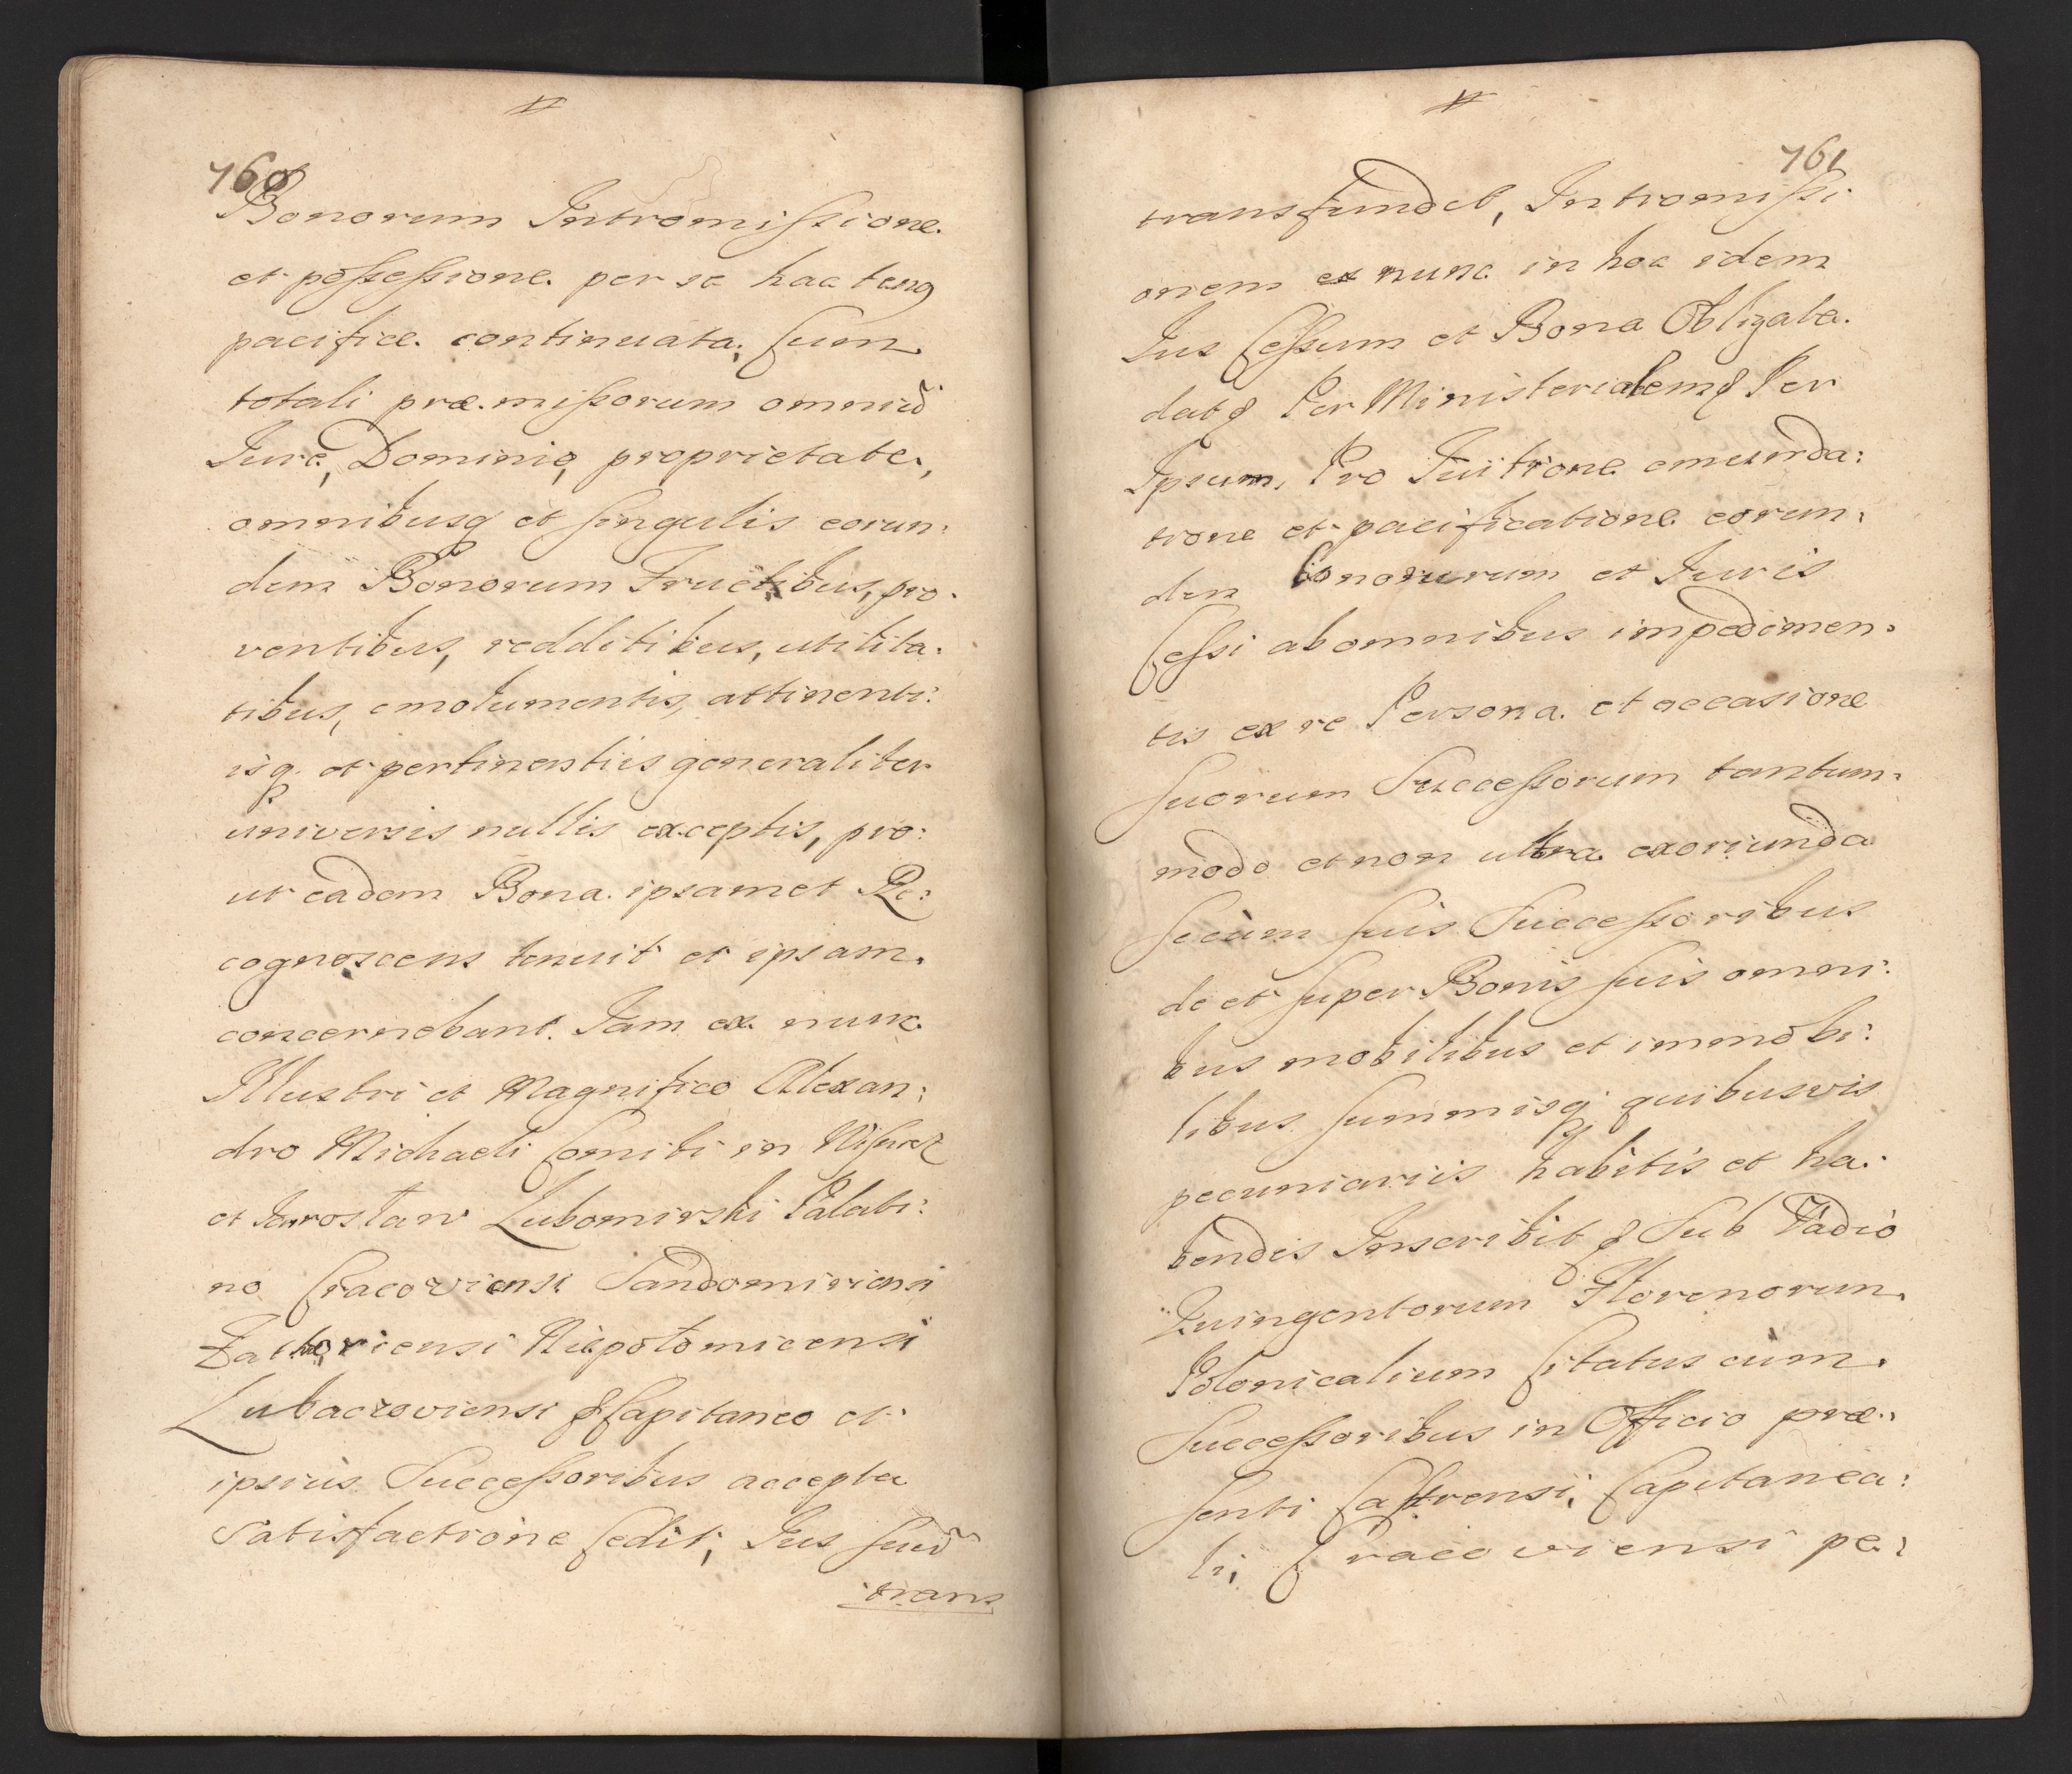 760
Bonorum Intromissione
et possessione per se hactenq
pacifice continuata; Cum
totali præmissorum omniũ
Jure, Dominio, proprietate,
omnibusq et singulis eorun:
dem Bonorum Fructibus, pro:
ventibus, redditibus, utilita:
tibus, emolumentis, attinenti:
isq. et pertinentiis generaliter
universis nullis exceptis, pro:
ut eadem Bona ipsamet Re:
cognoscens tenuit et ipsam
concernebant. Jam ex nunc
Illustri et Magnifico Alexan:
dro Michaeli Comiti in Wisnicz
et Jarosław Lubomirski Palati:
no Cracoviensi Sandomiriensi
Zathoriensi Niepołomicensi
Lubaczoviensi & Capitaneo et
ipsius Successoribus accepta
Satisfactione Cedit, Jus suũ
trans
761
transfundet, Intromissi
onem ex nunc in hoc idem
Jus Cessum et Bona Obligata
dat & Per Ministerialem & Per
Ipsum, Pro Tuitione emunda:
tione et pacificatione eorun:
dem Bonorum et Juris
Cessi ab omnibus impedimen:
tis ex re Persona et occasione
Suorum Successorum tantum:
modo et non ultra exoriunda
Secum suis Successoribus
de et super Bonis suis omni:
bus mobilibus et immobi:
libus summisq quibusvis
pecuniariis habitis et ha:
bendis Inscribit & Sub Vadio
Quingentorum Florenorum
Polonicalium Citatus cum
Successoribus in Officio præ:
senti Castrensi, Capitanea:
li, Cracoviensi pe: